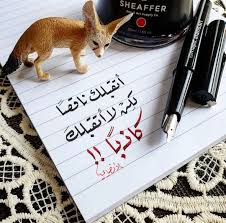 SHEAFFER
أتقبلك ناقصًا
لكن لا أتقبلك
كاذبًا !!